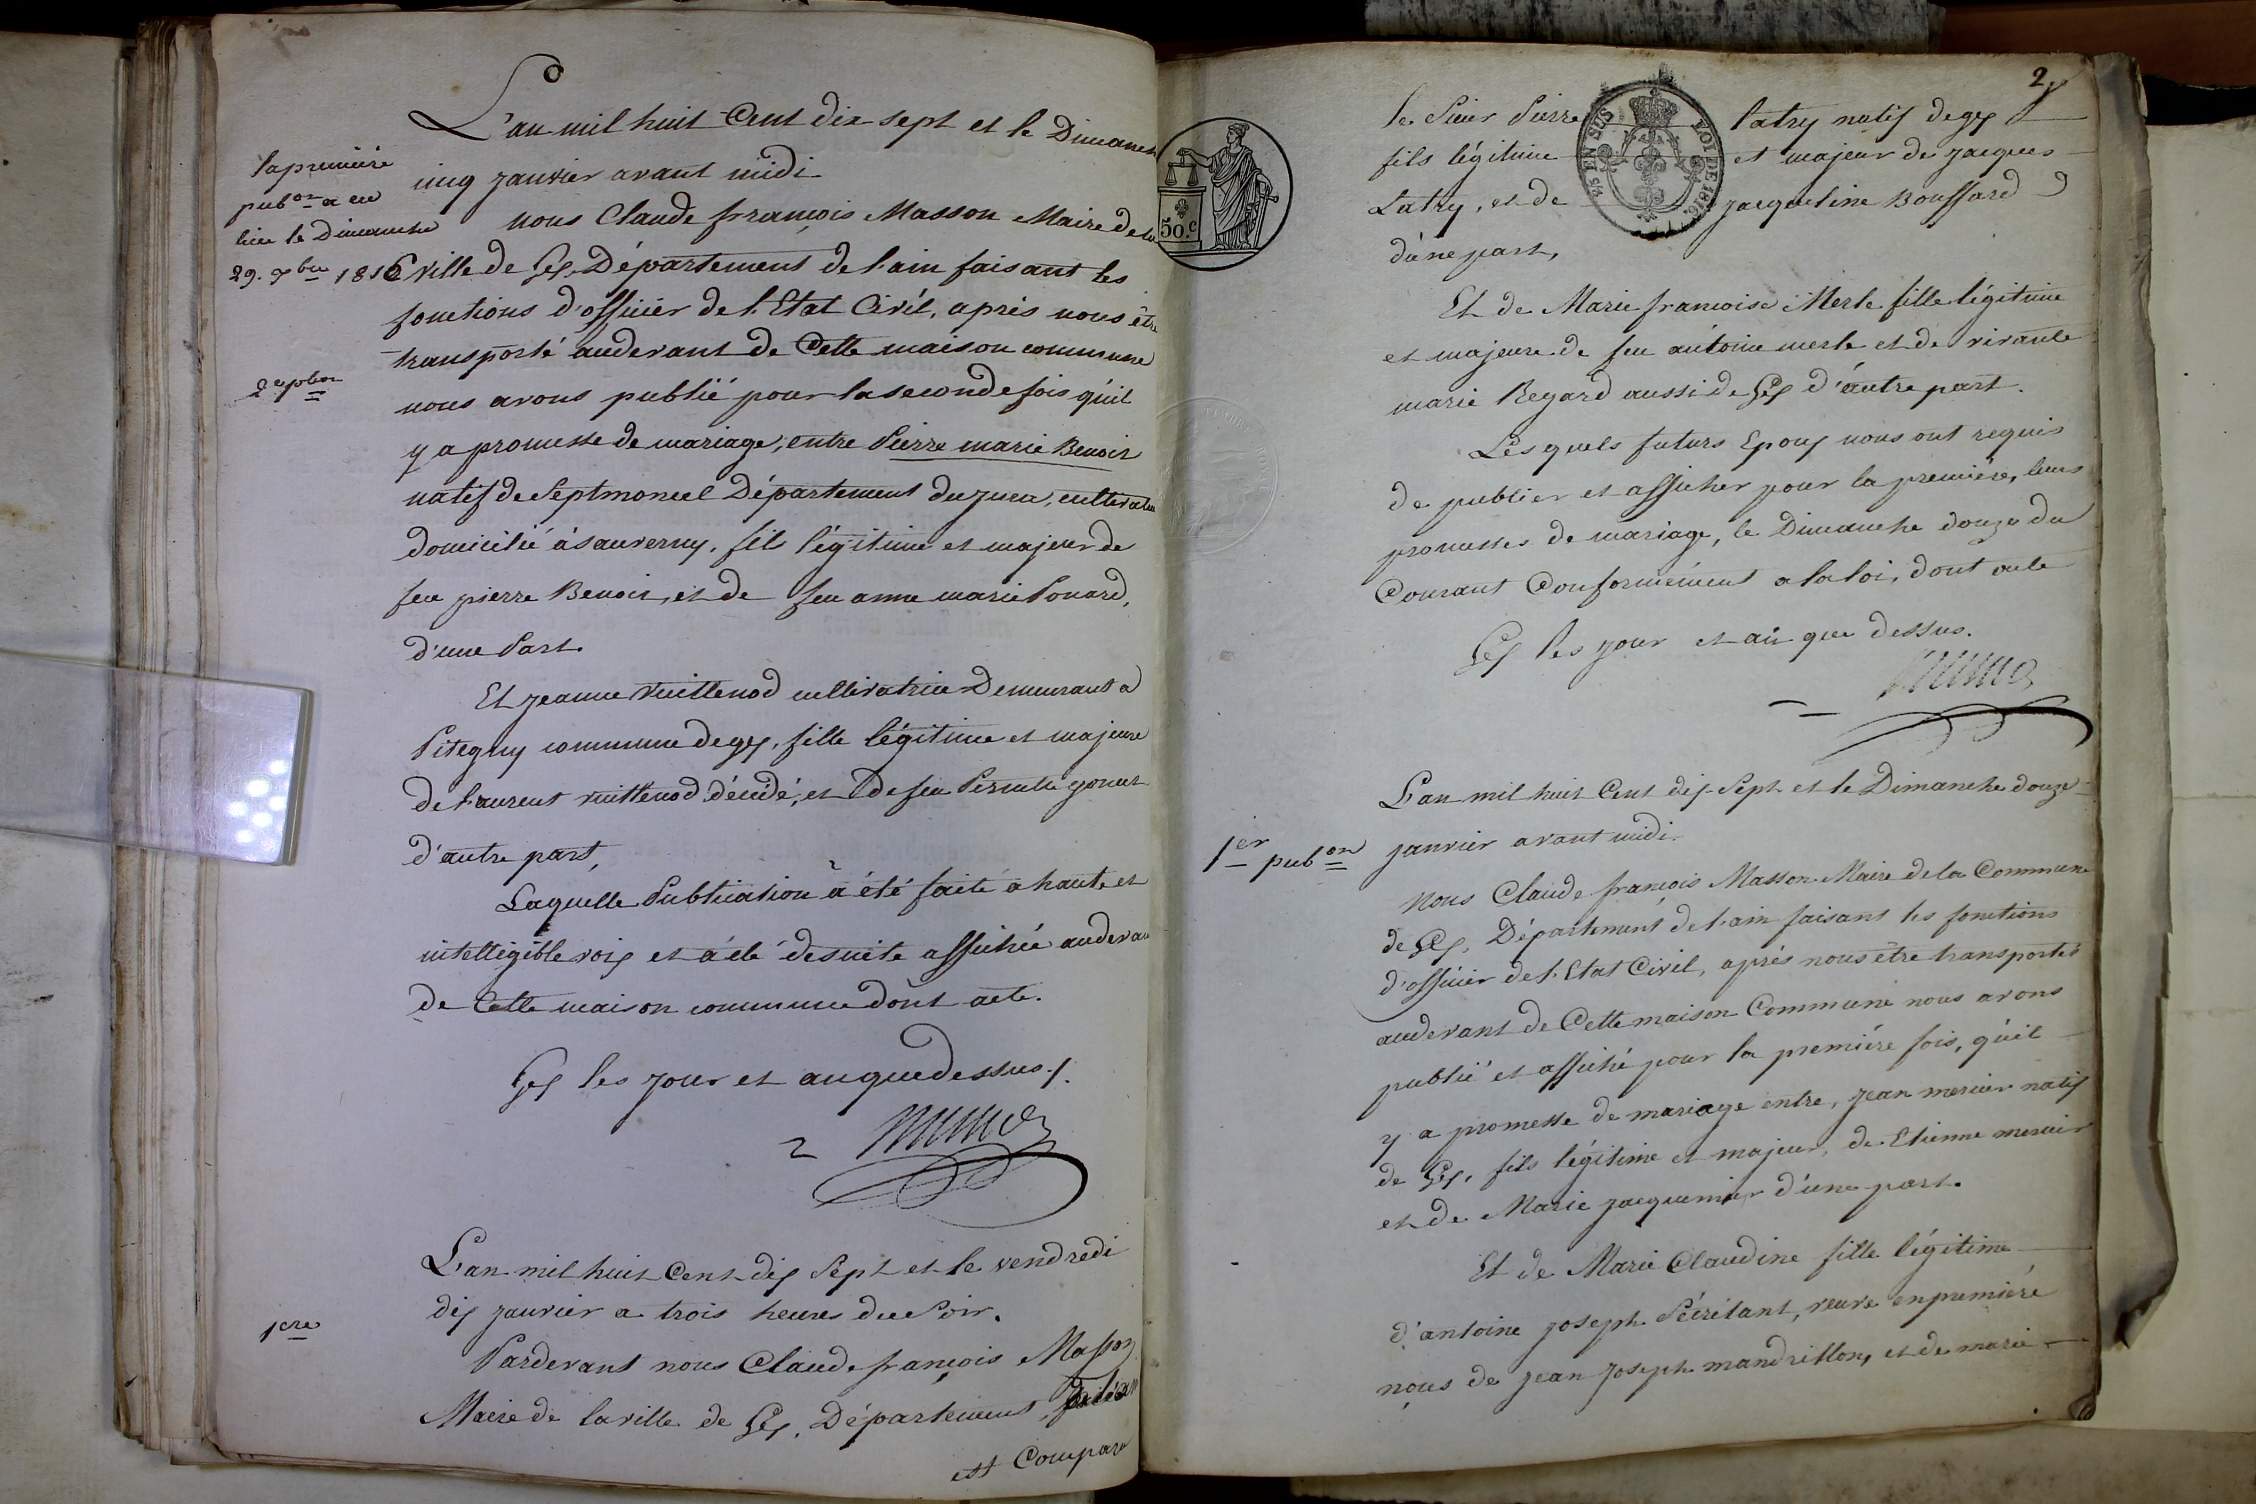 L'an mil huit Cent dix sept et le Dimanche
cinq janvier avant midi
la premiere
pub.on a eu
lieu le Dimanche
29. xbre 1816
nous Claude françois Masson Maire de la
ville de Gex Département de l'ain faisant les
fonctions d'officier de l'Etat Civil, après nous être
transporté audevant de Cette maison commune
2e pbon
nous avons publié pour la seconde fois qu'il
y a promesse de mariage, entre Pierre marie Benoit
natif de Septmoncel Département du jura, cultivateur
domicilié à sauverny, fils légitime et majeur de
feu pierre Benoit, et de feu anne marie Ponard,
d'une Part.
Et jeanne vuillenod cultivatrice Demeurant a
Pitegny commune de gex, fille légitime et majeure
de Laurent vuillenod décédé, et de feu Pernette gonet
d'autre part,
Laquelle Publication a été faite a haute et
intelligible voix et a été desuite affichée audevant
de Cette maison commune dont acte.
Gex les jour et an que dessus./.
L'an mil huit Cent dix Sept et le vendredi
dix janvier a trois heures du Soir.
1ere
Pardevant nous Claude françois Masson
Maire de la ville de Gex, Département de l'ain
est Comparu
2
le Sieur Pierre Latry natif de gex
fils légitime et majeur de jacques
Latry, et de jacqueline Bouffard
d'une part,
25 EN SUS LOI DE 1816.
50.c
Et de Marie françoise Merle fille légitime
et majeure de feu antoine merle et de vivante
marie Regard aussi de Gex d'autre part.
Lesquels futurs Epoux nous ont requis
de publier et afficher pour la premiere, leurs
promesses de mariage, le Dimanche douze du
Courant Conformément a la loi, dont acte
Gex les jour et an que dessus.
L'an mil huit Cent dix Sept et le Dimanche douze
janvier avant midi.
1er pub.on
Nous Claude françois Masson Maire de la Commune
de Gex, Département de l'ain faisant les fonctions
d'officier de l'Etat Civil, après nous être transportés
audevant de Cette maison Commune nous avons
publié et affiché pour la première fois, qu'il
y a promesse de mariage entre, jean mercier natif
de Gex, fils légitime et majeur, de Etienne mercier
et de Marie jacquemier d'une part.
Et de Marie Claudine fille légitime
d'antoine joseph Sécrétant, veuve en premiére
noçes de jean joseph mandrillon, et de marie